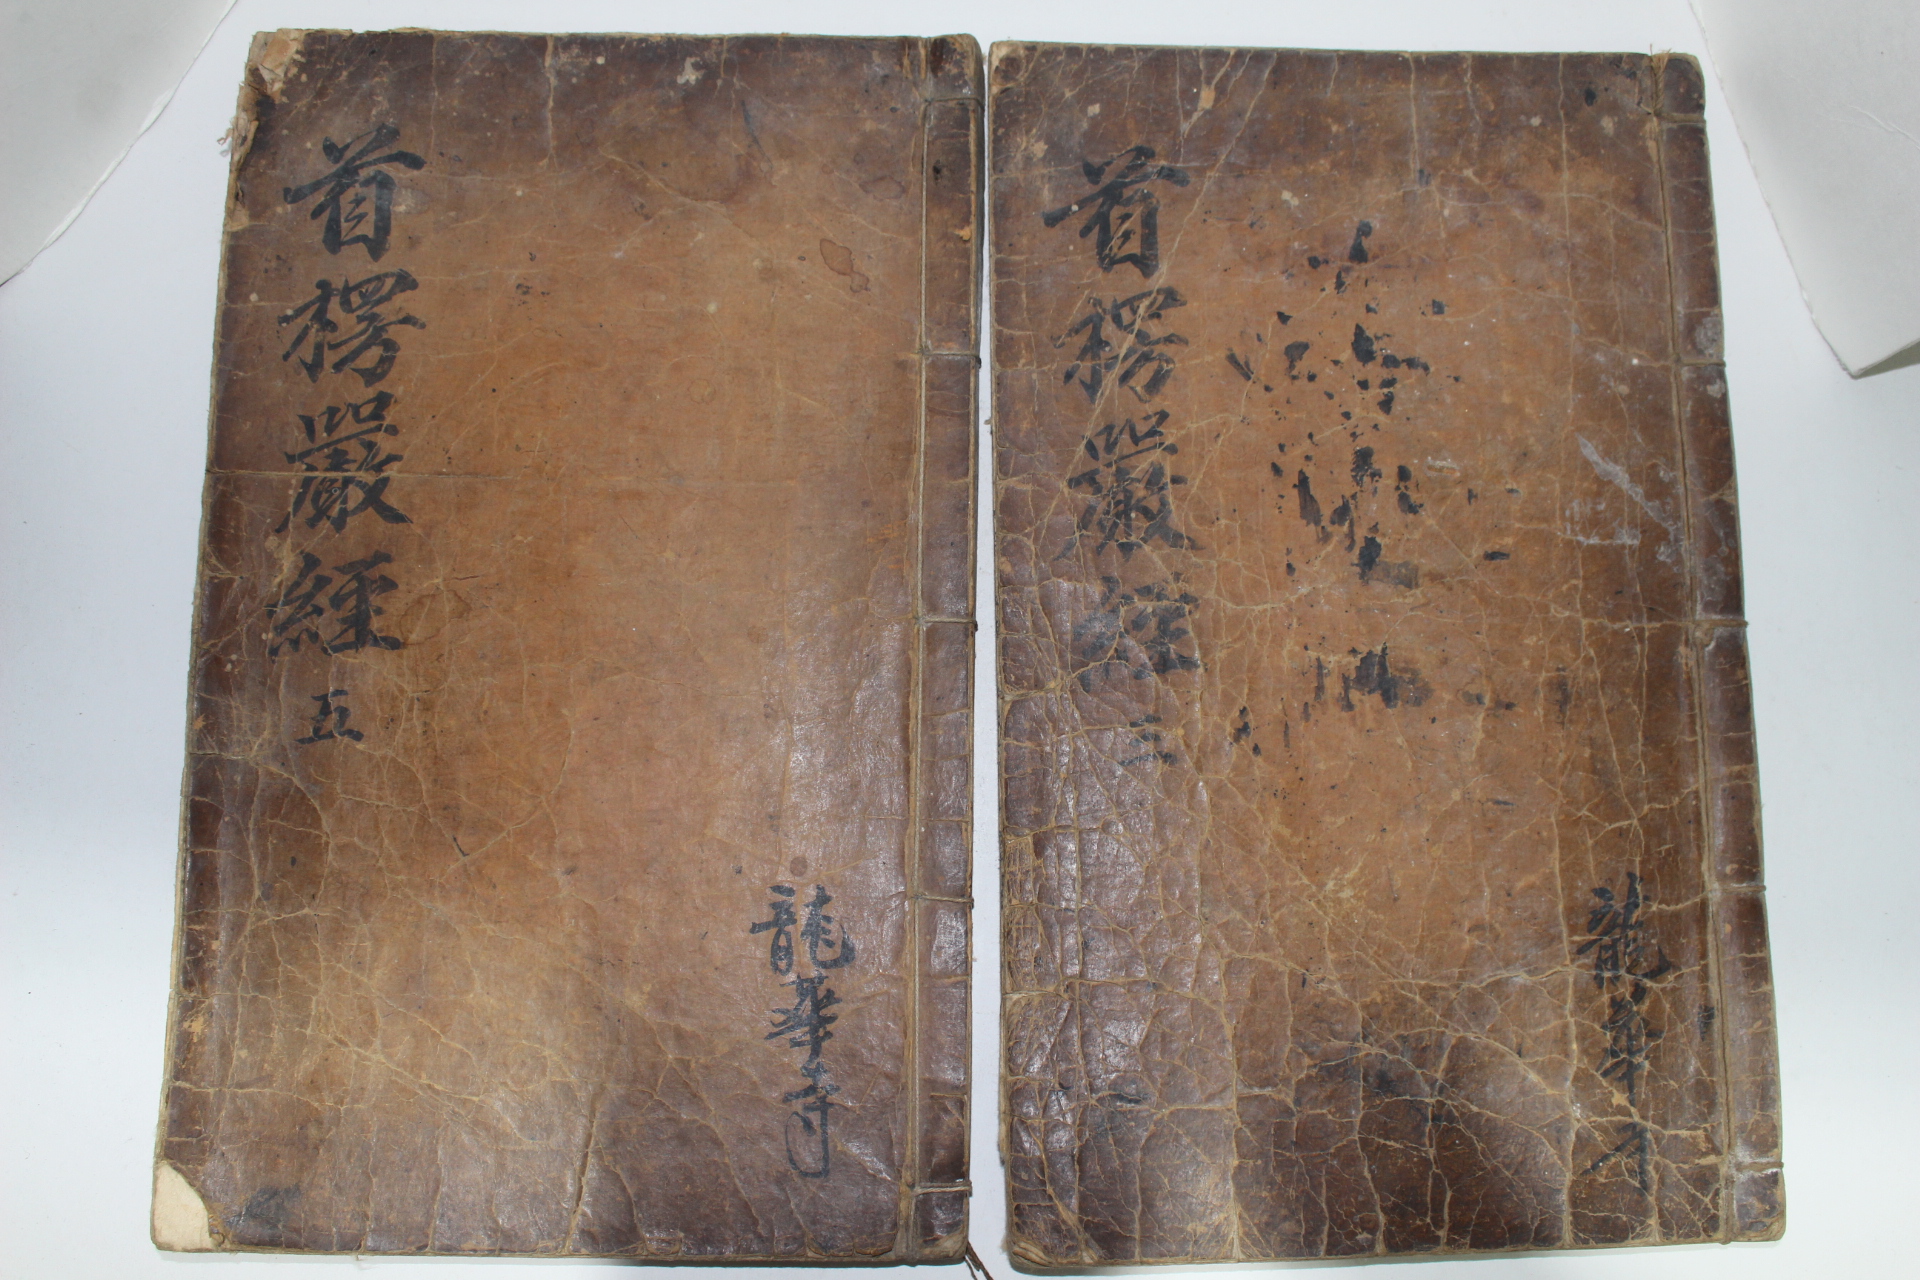 首楞嚴經 三
龍華寺
首楞嚴經 五
龍華寺